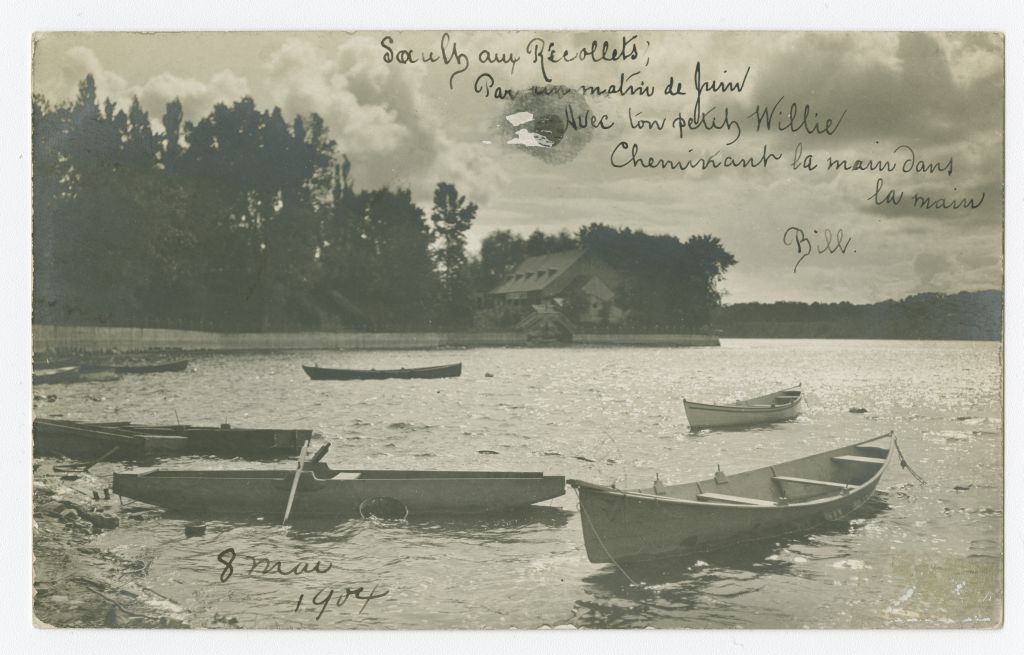 Sault aux Récollets;
Par un matin de Juin
Avec ton petit Willie
Cheminant la main dans
la main
Bill.
8 mai
1904